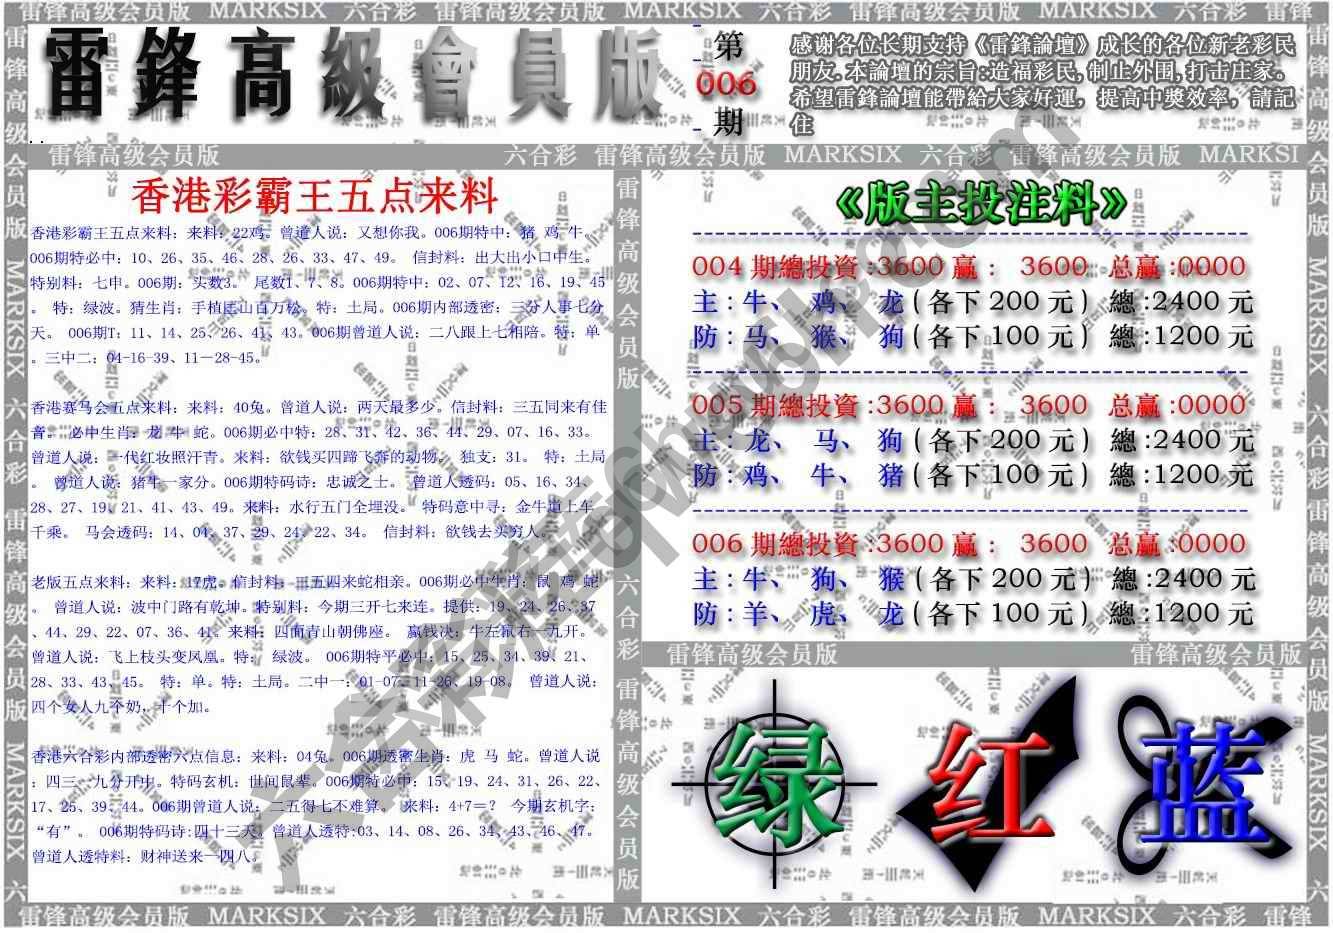 雷锋高级会员版 MARKSIX 六合彩 雷锋高级会员版 MARKSIX 六合彩 雷锋高级会员版 MARKSIX 六合彩 雷锋
雷鋒高級會員版
第
006
期
感谢各位长期支持《雷鋒論壇》成长的各位新老彩民
朋友.本論壇的宗旨:造福彩民,制止外围,打击庄家。
希望雷鋒論壇能帶給大家好運，提高中獎效率，請記
住
雷锋高级会员版 六合彩 雷锋高级会员版 MARKSIX 六合彩 雷锋高级会员版 MARKSI
香港彩霸王五点来料
香港彩霸王五点来料：来料：22鸡。曾道人说：又想你我。006期特中：猪 鸡 牛。
006期特必中：10、26、35、46、28、26、33、47、49。 信封料：出大出小口中生。
特别料：七申。006期：头数3。 尾数1、7、8。006期特中：02、07、12、16、19、45
。 特：绿波。猜生肖：手植匡山百万松。特：土局。006期内部透密：三分人事七分
天。 006期T：11、14、25、26、41、43。006期曾道人说：二八跟上七相陪。特：单
。三中二：04-16-39、11－28-45。
香港赛马会五点来料：来料：40兔。曾道人说：两天最多少。信封料：三五同来有佳
音。 必中生肖：龙 牛 蛇。006期必中特：28、31、42、36、44、29、07、16、33。
曾道人说：一代红妆照汗青。来料：欲钱买四蹄飞奔的动物。 独支：31。 特：土局
。 曾道人说：猪牛一家分。006期特码诗：忠诚之士。 曾道人透码：05、16、34、
28、27、19、21、41、43、49。来料：水行五门全埋没。 特码意中寻：金牛道上车
千乘。 马会透码：14、04、37、29、24、22、34。 信封料：欲钱去买穷人。
老版五点来料：来料：17虎。信封料：三五四来蛇相亲。006期必中生肖：鼠 鸡 蛇
。 曾道人说：波中门路有乾坤。特别料：今期三开七来连。提供：19、24、26、37
、44、29、22、07、36、41。来料：四面青山朝佛座。 赢钱决：牛左鼠右一九开。
曾道人说：飞上枝头变凤凰。特： 绿波。 006期特平必中：15、25、34、39、21、
28、33、43、45。 特：单。特：土局。二中一：01-07、11-26、19-08。 曾道人说：
四个女人九个奶，十个加。
香港六合彩内部透密六点信息：来料：04兔。006期透密生肖：虎 马 蛇。曾道人说
：四三一九分开中。特码玄机：世间鼠辈。006期特必中：15、19、24、31、26、22、
17、25、39、44。006期曾道人说：二五得七不难算。 来料：4+7＝？ 今期玄机字：
“有”。 006期特码诗:四十三天。曾道人透特:03、14、08、26、34、43、46、47。
曾道人透特料：财神送来一四八。
《版主投注料》
004 期總投資:3600 赢： 3600 总赢:0000
主:牛、 鸡、 龙(各下 200 元) 總:2400 元
防:马、 猴、 狗(各下 100 元) 總:1200 元
005 期總投資:3600 赢： 3600 总赢:0000
主:龙、 马、 狗(各下 200 元) 總:2400 元
防:鸡、 牛、 猪(各下 100 元) 總:1200 元
006 期總投資:3600 赢： 3600 总赢:0000
主:牛、 狗、 猴(各下 200 元) 總:2400 元
防:羊、 虎、 龙(各下 100 元) 總:1200 元
雷锋高级会员版 雷锋高级会员版
绿 红 蓝
雷锋高级会员版 MARKSIX 六合彩 雷锋高级会员版 MARKSIX 六合彩 雷锋高级会员版 MARKSIX 六合彩 雷锋